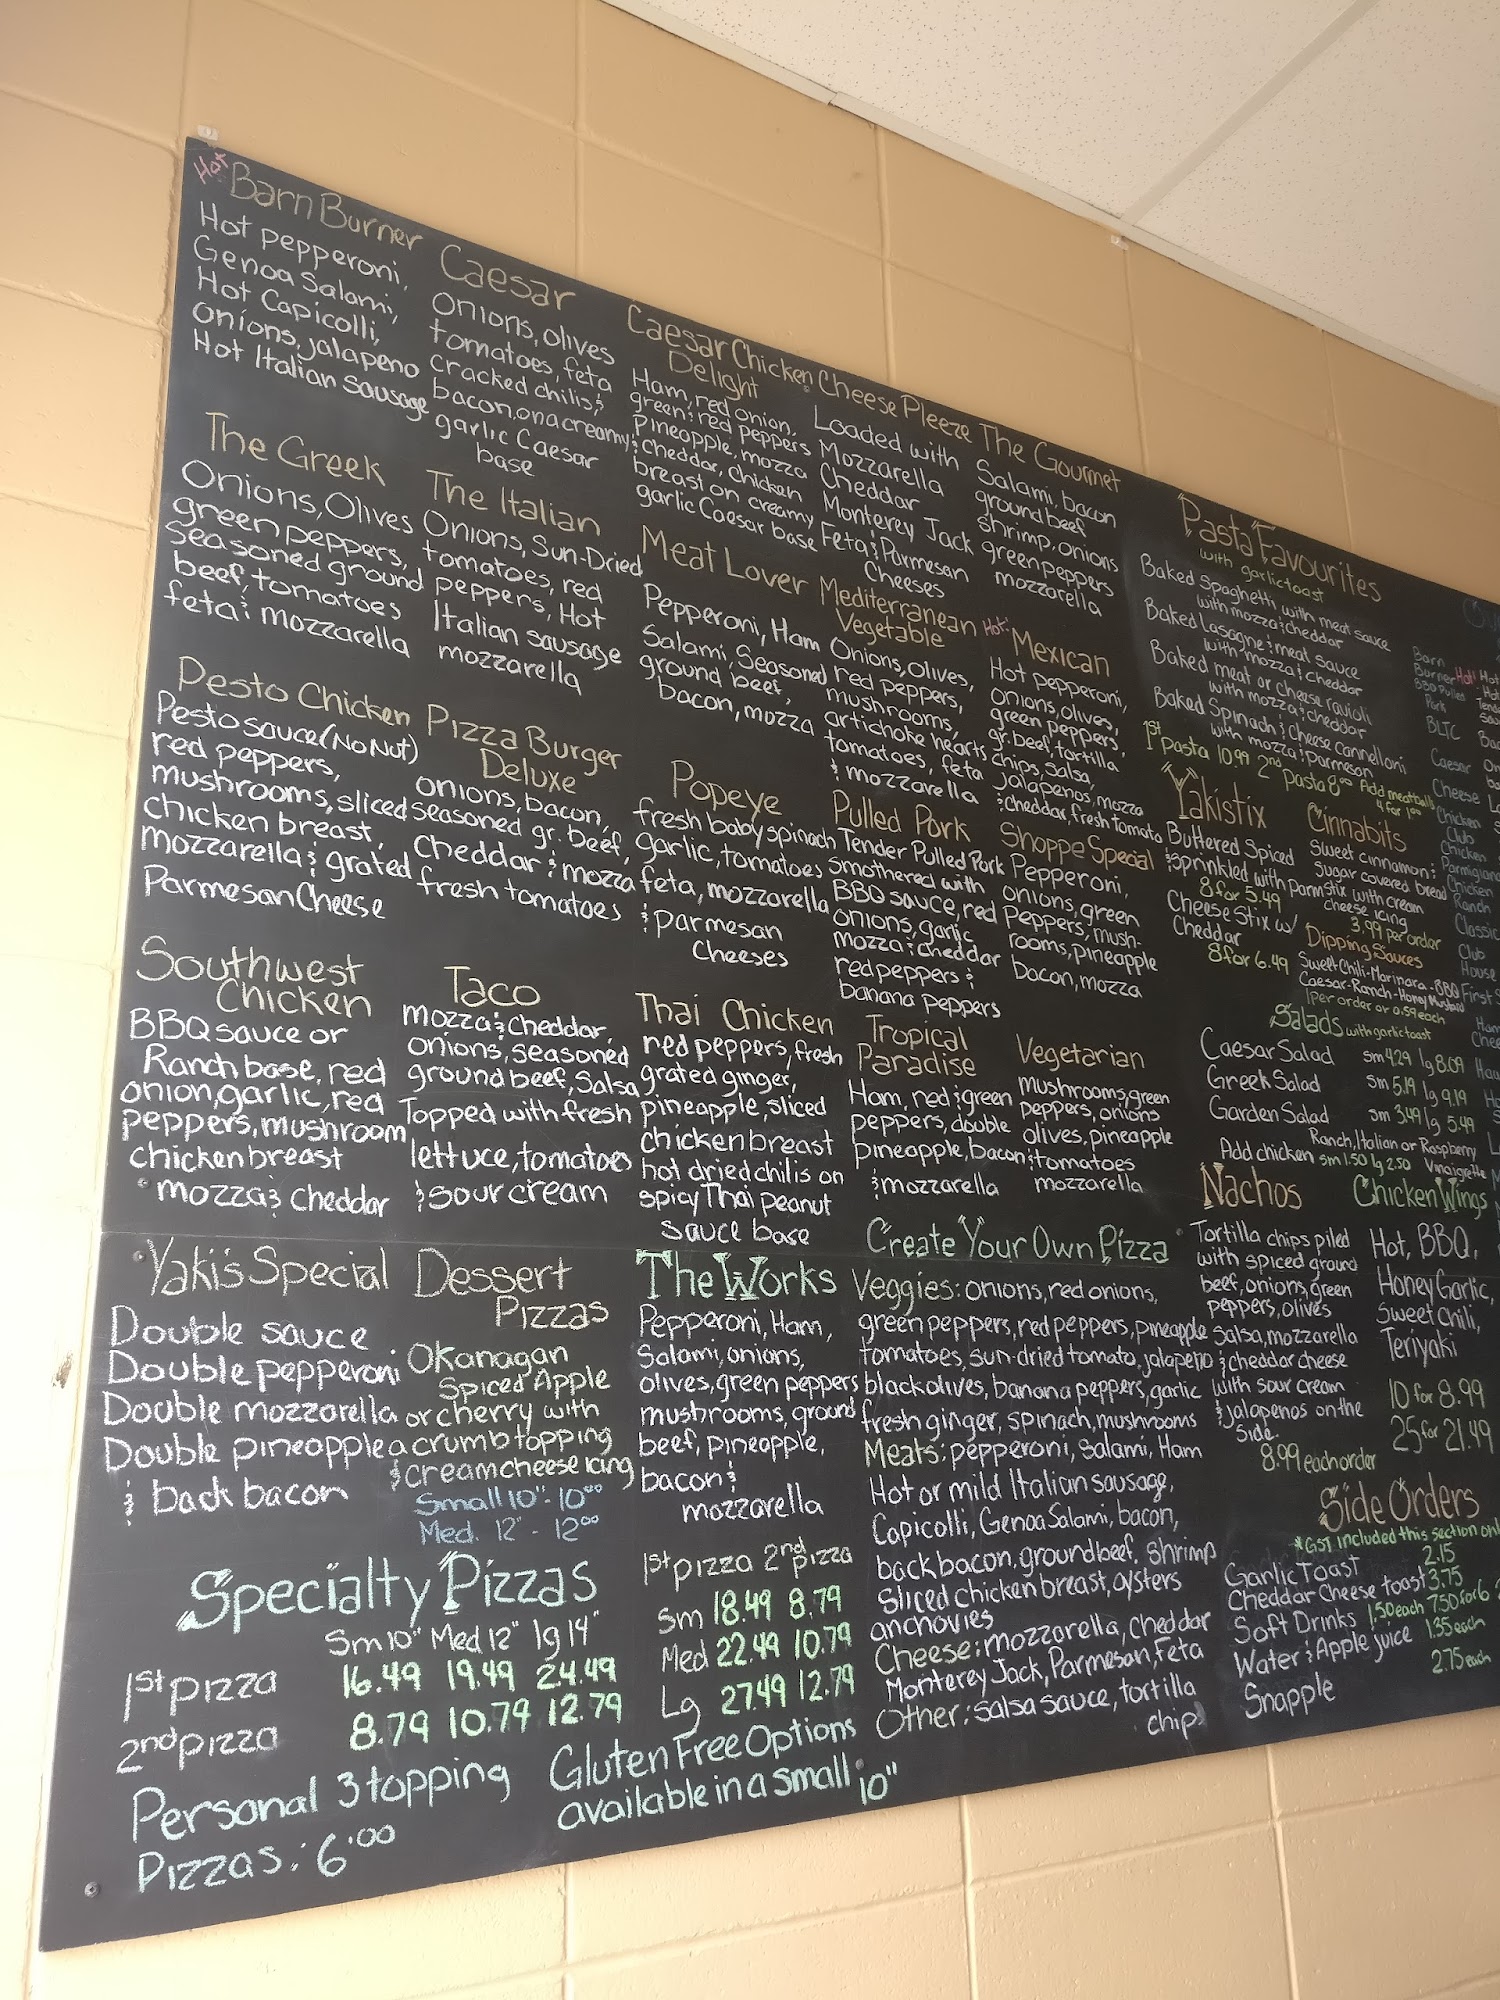 Hot
Barn Burner
Hot pepperoni,
Genoa Salami,
Hot Capicolli,
onions, jalapeno
Hot Italian sausage
Caesar
onions, olives
tomatoes, feta
cracked chilis &
bacon, on a creamy
garlic Caesar
base
Caesar Chicken
Delight
Ham, red onion,
green & red peppers
Pineapple, mozza
& cheddar, chicken
breast on creamy
garlic Caesar base
Cheese Pleeze
Loaded with
Mozzarella
Cheddar
Monterey Jack
Feta & Parmesan
Cheeses
The Gourmet
Salami, bacon
ground beef
shrimp, onions
green peppers
mozzarella
The Greek
Onions, Olives
green peppers,
seasoned ground
beef, tomatoes
feta & mozzarella
The Italian
Onions, Sun-Dried
tomatoes, red
peppers, Hot
Italian sausage
mozzarella
Meat Lover
Pepperoni, Ham
Salami, Seasoned
ground beef,
bacon, mozza
Mediterranean
Vegetable
Onions, olives,
red peppers,
mushrooms,
artichoke hearts
tomatoes, feta
& mozzarella
Hot! Mexican
Hot pepperoni,
onions, olives,
green peppers,
gr. beef, tortilla
chips, salsa,
jalapenos, mozza
& cheddar, fresh tomato
Pesto Chicken
Pesto sauce (No Nut)
red peppers,
mushrooms, sliced
chicken breast,
mozzarella & grated
Parmesan Cheese
Pizza Burger
Deluxe
onions, bacon,
seasoned gr. beef,
Cheddar & mozza
fresh tomatoes
Popeye
fresh baby spinach
garlic, tomatoes
feta, mozzarella
& parmesan
Cheeses
Pulled Pork
Tender Pulled Pork
smothered with
BBQ sauce, red
onions, garlic
mozza & cheddar
red peppers &
banana peppers
Shoppe Special
Pepperoni,
onions, green
Peppers, mush-
rooms, pineapple
bacon, mozza
Southwest
Chicken
BBQ sauce or
Ranch base, red
onion, garlic, red
peppers, mushroom
chicken breast
mozza & cheddar
Taco
mozza & cheddar,
onions, seasoned
ground beef, Salsa
Topped with fresh
lettuce, tomatoes
& sour cream
Thai Chicken
red peppers, fresh
grated ginger,
pineapple, sliced
chicken breast
hot dried chilis on
spicy Thai peanut
sauce base
Tropical
Paradise
Ham, red & green
peppers, double
pineapple, bacon
& mozzarella
Vegetarian
mushrooms, green
peppers, onions
olives, pineapple
& tomatoes
mozzarella
Yaki's Special
Double sauce
Double pepperoni
Double mozzarella
Double pineapple
& back bacon
Dessert
Pizzas
Okanagan
Spiced Apple
or cherry with
a crumb topping
& cream cheese icing
Small 10" - 10.00
Med. 12" - 12.00
The Works
Pepperoni, Ham,
Salami, onions,
olives, green peppers
mushrooms, ground
beef, pineapple,
bacon &
mozzarella
1st pizza 2nd pizza
Sm 18.49 8.79
Med 22.49 10.79
Lg 27.49 12.79
Create Your Own Pizza
Veggies: onions, red onions,
green peppers, red peppers, pineapple
tomatoes, sun-dried tomato, jalapeno
black olives, banana peppers, garlic
fresh ginger, spinach, mushrooms
Meats: pepperoni, Salami, Ham
Hot or mild Italian sausage,
Capicolli, Genoa Salami, bacon,
back bacon, ground beef, shrimp
sliced chicken breast, oysters
anchovies
Cheese: mozzarella, Cheddar
Monterey Jack, Parmesan, Feta
Other: salsa sauce, tortilla
chips
Specialty Pizzas
Sm 10" Med 12" lg 14"
1st pizza 16.49 19.49 24.49
2nd pizza 8.79 10.79 12.79
Personal 3 topping
Pizzas: 6.00
Gluten Free Options
available in a small 10"
Pasta Favourites
with garlic toast
Baked Spaghetti with meat sauce
with mozza & cheddar
Baked Lasagne & meat sauce
with mozza & cheddar
Baked meat or cheese ravioli
with mozza & cheddar
Baked Spinach & Cheese Cannelloni
with mozza & parmesan
1st pasta 10.99 2nd Pasta
Add meatballs
4 for 1.00
Yakistix
Buttered Spiced
& sprinkled with parm
8 for 5.49
Cheese Stix w/
Cheddar
8 for 6.49
Cinnabits
Sweet cinnamon &
sugar covered bread
stix with cream
cheese icing
3.99 per order
Dipping Sauces
Sweet Chili-Marinara-BBQ
Caesar-Ranch-Honey Mustard
1 per order or 0.59 each
Salads with garlic toast
Caesar Salad sm 4.29 lg 8.09
Greek Salad sm 5.19 lg 9.19
Garden Salad sm 3.49 lg 5.49
Ranch, Italian or Raspberry
Vinaigrette
Add chicken sm 1.50 lg 2.50
Nachos
Tortilla chips piled
with spiced ground
beef, onions, green
peppers, olives
salsa, mozzarella
& cheddar cheese
with sour cream
& jalapenos on the
side.
8.99 each order
Chicken Wings
Hot, BBQ,
Honey Garlic,
Sweet Chili,
Teriyaki
10 for 8.99
25 for 21.49
Side Orders
*GST included this section only
Garlic Toast 2.15
Cheddar Cheese toast 3.75
Soft Drinks 1.50 each 7.50 for 6
Water & Apple juice 1.35 each
Snapple 2.75 each
Barn
Burner Hot!
BBQ Pulled
Pork
BLTC
Caesar
Cheese
Chicken
Club
Chicken
Parmigiana
Chicken
Ranch
Classic
Club
House
First